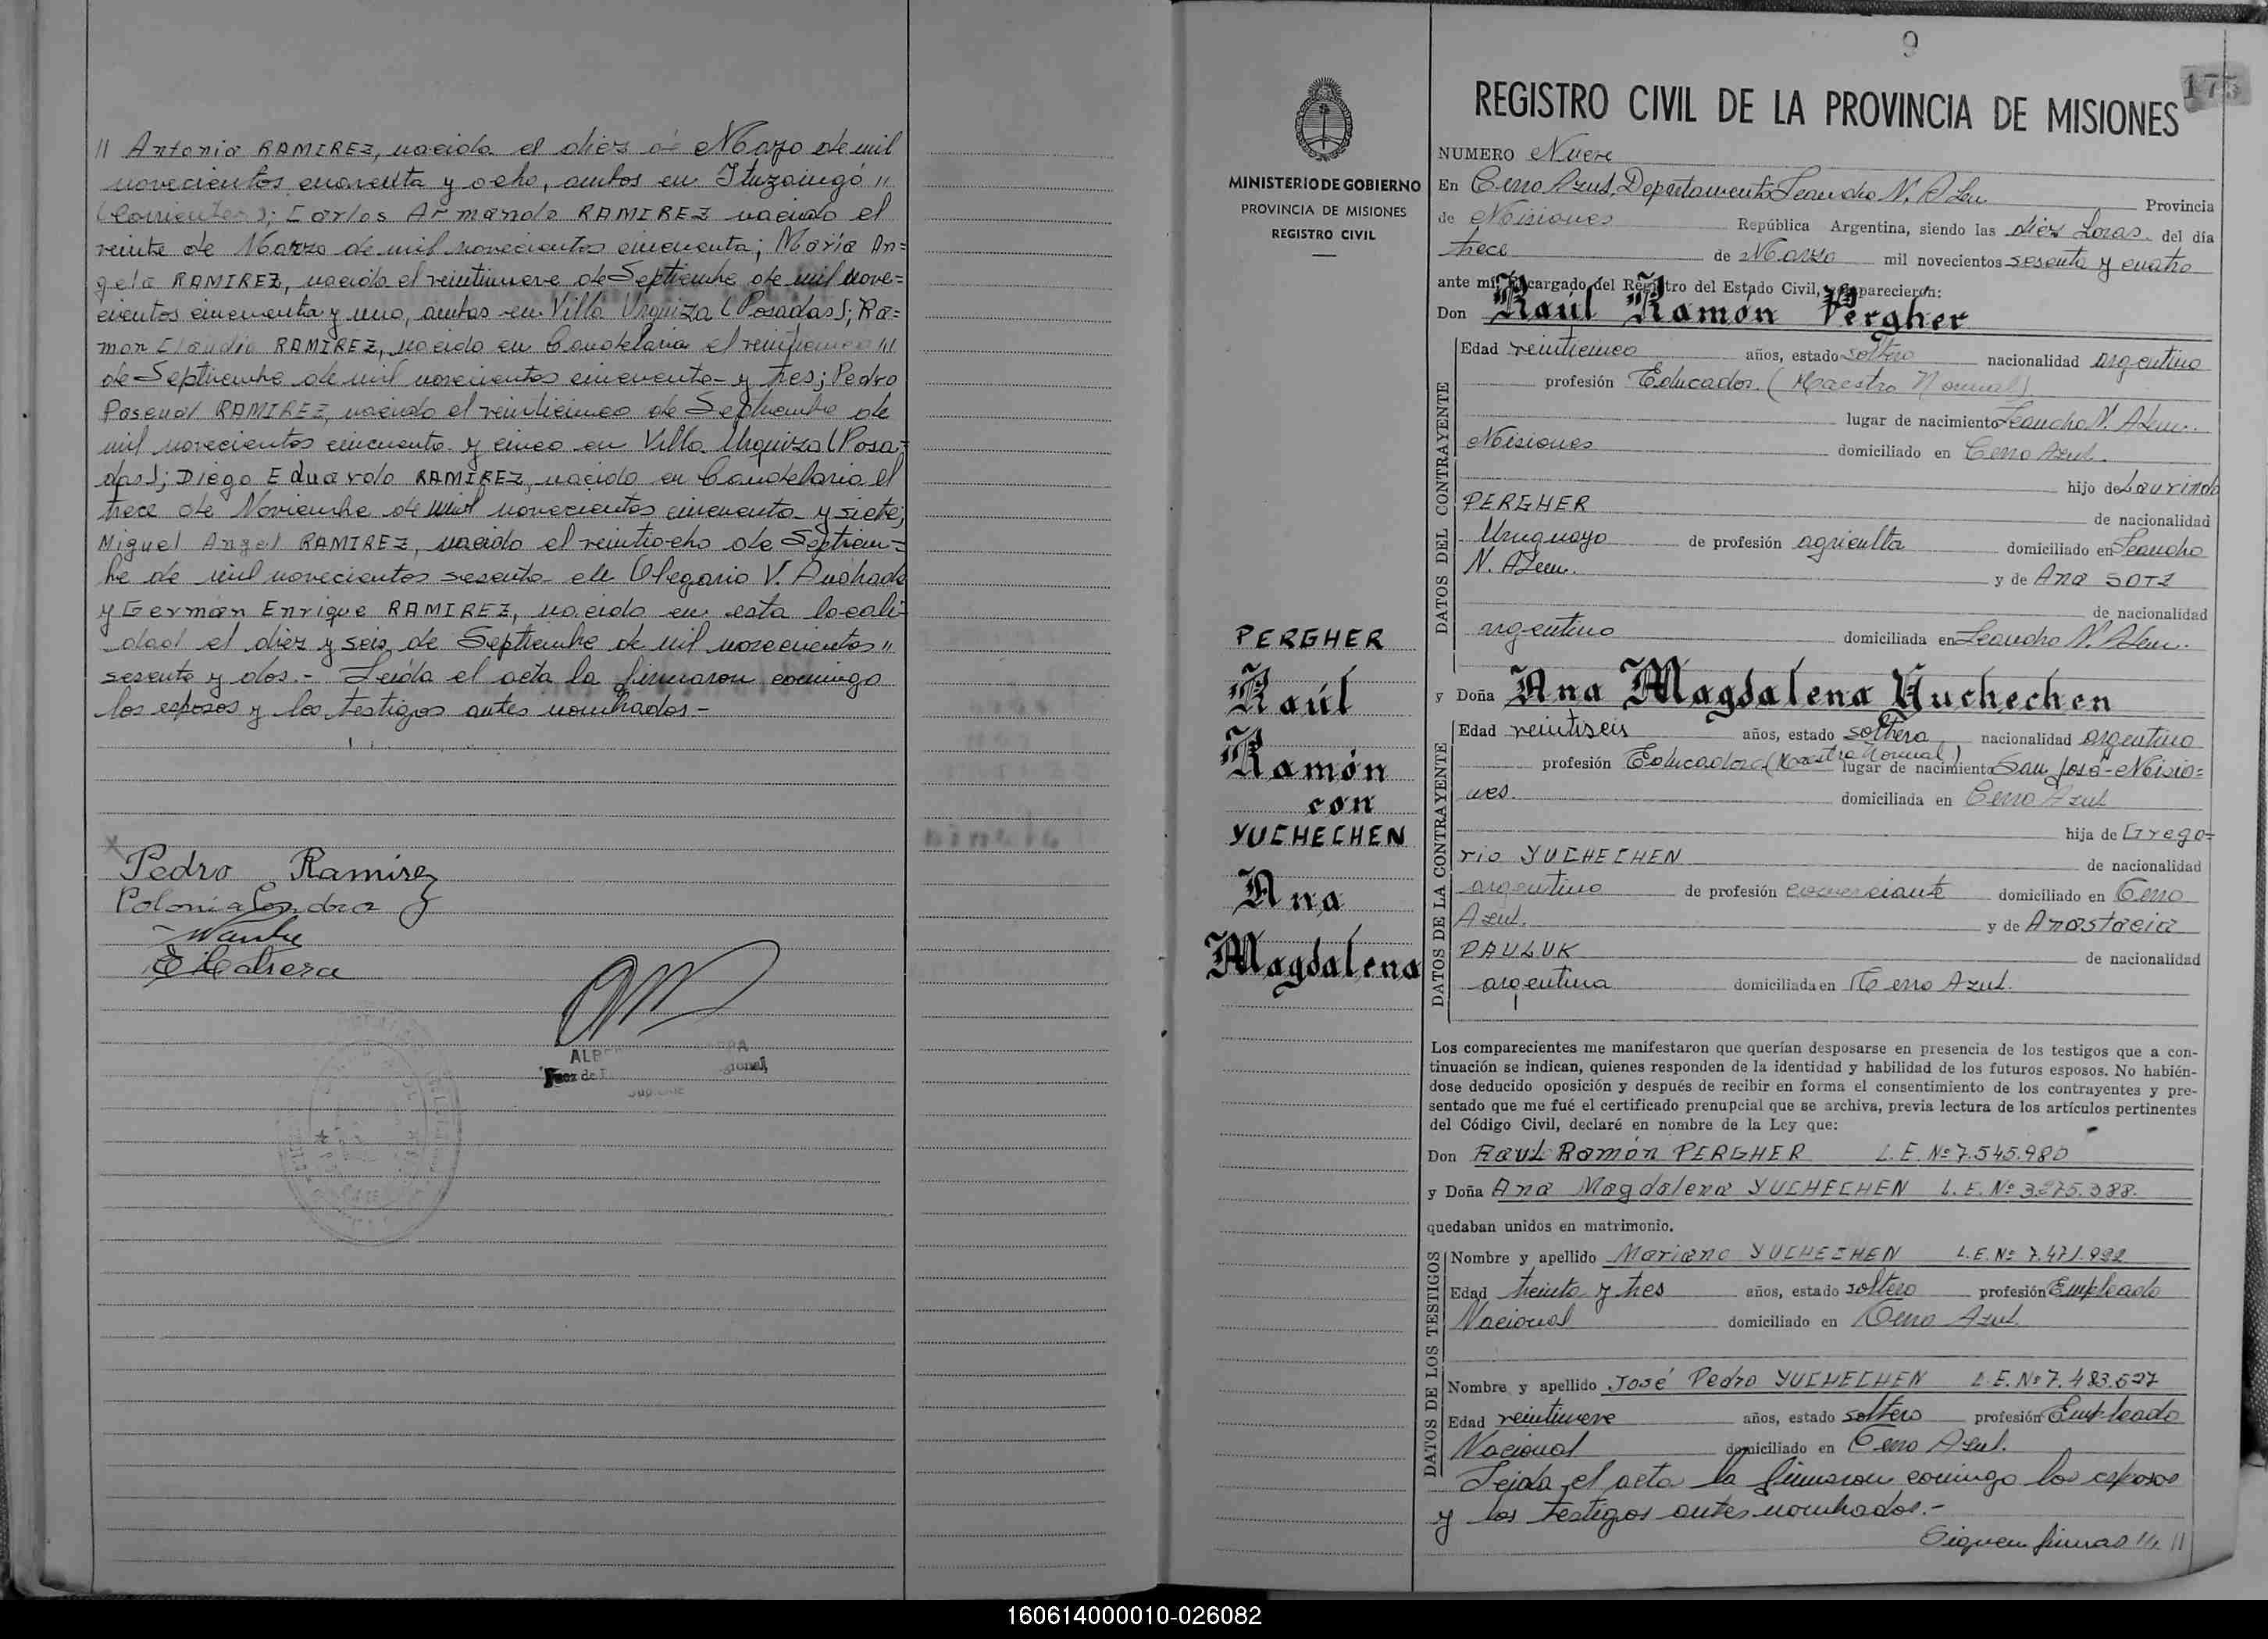 // Antonia RAMIREZ, nacida el diez de Mayo de mil
novecientos cuarenta y ocho, ambos en Ituzaingó //
(Corrientes); Carlos Armando RAMIREZ nacido el
veinte de Marzo de mil novecientos cincuenta; María An=
gela RAMIREZ, nacida el veintinueve de Septiembre de mil nove=
cientos cincuenta y uno, ambas en Villa Urquiza (Posadas); Ra=
mon Claudio RAMIREZ, nacido en Candelaria el
de Septiembre de mil novecientos cincuenta y tres; Pedro
Pascual RAMIREZ, nacido el veinticinco de Septiembre de
mil novecientos cincuenta y cinco en Villa Urquiza (Posa=
das); Diego Eduardo RAMIREZ, nacido en Candelaria el
trece de Noviembre de mil novecientos cincuenta y siete;
Miguel Angel RAMIREZ, nacido el veintiocho de Septiem=
bre de mil novecientos sesenta en Olegario V. Andrade
y German Enrique RAMIREZ, nacido en esta locali=
dad el diez y seis de Septiembre de mil novecientos //
sesenta y dos.- Leída el acta la firmaron conmigo
los esposos y los testigos antes nombrados.-
Pedro Ramirez
Polonia
E Cabrera
9
175
REGISTRO CIVIL DE LA PROVINCIA DE MISIONES
MINISTERIO DE GOBIERNO
PROVINCIA DE MISIONES
REGISTRO CIVIL
NUMERO Nueve
En Cerro Azul, Departamento Leandro N. Alem Provincia
de Misiones República Argentina, siendo las diez horas del día
trece de Marzo mil novecientos sesenta y cuatro
ante mí, Encargado del Registro del Estado Civil, comparecieron:
Don Raúl Ramón Pergher
DATOS DEL CONTRAYENTE
Edad veinticinco años, estado soltero nacionalidad argentino
profesión Educador (Maestro Normal)
lugar de nacimiento Leandro N. Alem.
Misiones domiciliado en Cerro Azul.
hijo de Laurindo
PERGHER de nacionalidad
Uruguayo de profesión agriculta domiciliado en Leandro
N. Alem. y de Ana SOTZ
de nacionalidad
argentina domiciliada en Leandro N. Alem.
PERGHER
Raúl
Ramón
con
YUCHECHEN
Ana
Magdalena
y Doña Ana Magdalena Yuchechen
DATOS DE LA CONTRAYENTE
Edad veintiseis años, estado soltera nacionalidad argentina
profesión Educadora (Maestra Normal) lugar de nacimiento San José-Misio=
nes. domiciliada en Cerro Azul
hija de Grego=
rio YUCHECHEN de nacionalidad
argentino de profesión comerciante domiciliado en Cerro
Azul. y de Anastacia
PAULUK de nacionalidad
argentina domiciliada en Cerro Azul.
Los comparecientes me manifestaron que querían desposarse en presencia de los testigos que a con-
tinuación se indican, quienes responden de la identidad y habilidad de los futuros esposos. No habién-
dose deducido oposición y después de recibir en forma el consentimiento de los contrayentes y pre-
sentado que me fué el certificado prenupcial que se archiva, previa lectura de los artículos pertinentes
del Código Civil, declaré en nombre de la Ley que:
Don Raul Ramón PERGHER L.E. Nº 7.545.980
y Doña Ana Magdalena YUCHECHEN L.E. Nº 3.275.388.
quedaban unidos en matrimonio.
DATOS DE LOS TESTIGOS
Nombre y apellido Mariano YUCHECHEN L.E. Nº
Edad treinta y tres años, estado soltero profesión Empleado
Nacional domiciliado en Cerro Azul
Nombre y apellido José Pedro YUCHECHEN L.E. Nº 7.483.527
Edad veintinueve años, estado soltero profesión Empleado
Nacional domiciliado en Cerro Azul.
Leida el acta la firmaron conmigo los esposos
y los testigos antes nombrados.-
Siguen firmas ////
160614000010-026082